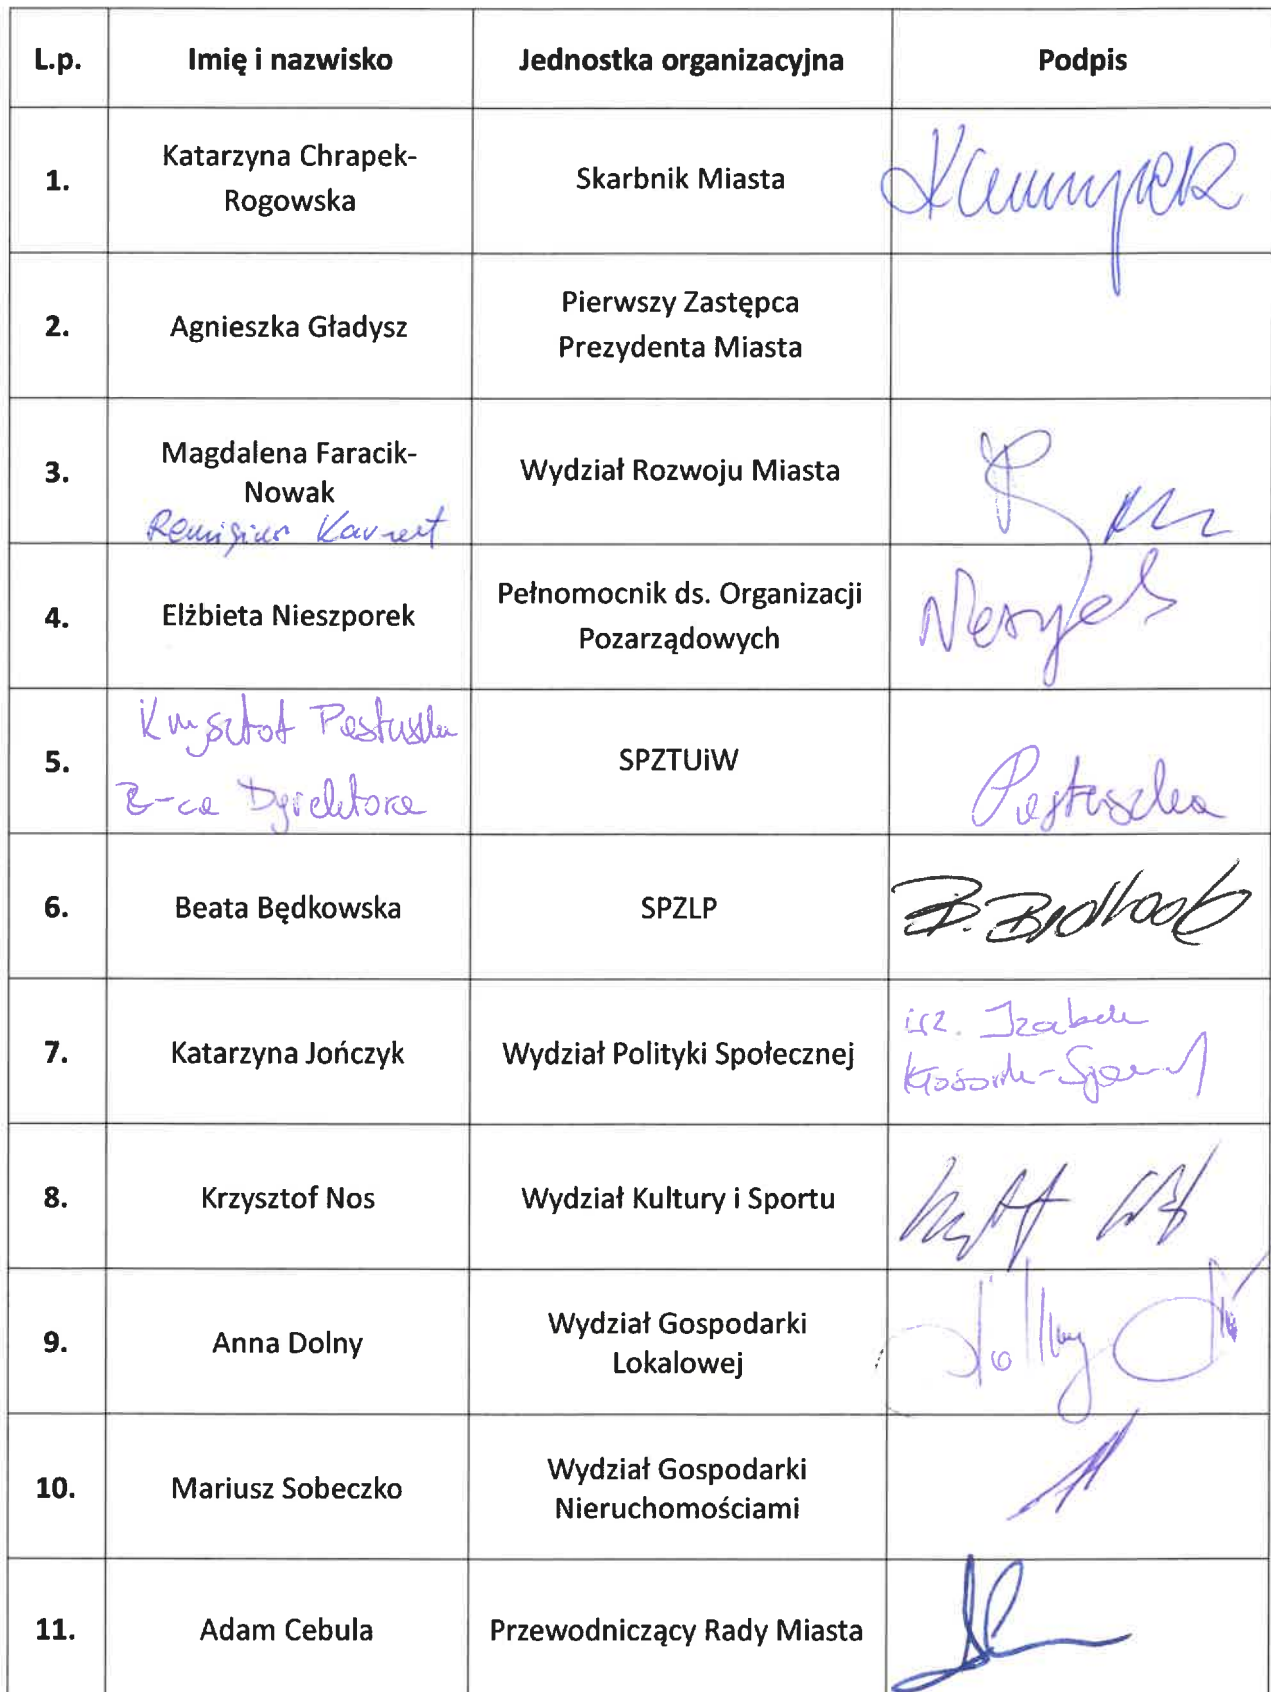 L.p. Imię i nazwisko Jednostka organizacyjna Podpis
1. Katarzyna Chrapek-
Rogowska
Skarbnik Miasta
2. Agnieszka Gładysz
Pierwszy Zastępca
Prezydenta Miasta
3. Magdalena Faracik-
Nowak
Wydział Rozwoju Miasta
4. Elżbieta Nieszporek
Pełnomocnik ds. Organizacji
Pozarządowych
5. Krzysztof Pastuszka
Z-ca Dyrektora
SPZTUiW
Pastuszka
6. Beata Będkowska
SPZLP
7. Katarzyna Jończyk
Wydział Polityki Społecznej
8. Krzysztof Nos
Wydział Kultury i Sportu
9. Anna Dolny
Wydział Gospodarki
Lokalowej
10. Mariusz Sobeczko
Wydział Gospodarki
Nieruchomościami
11. Adam Cebula
Przewodniczący Rady Miasta